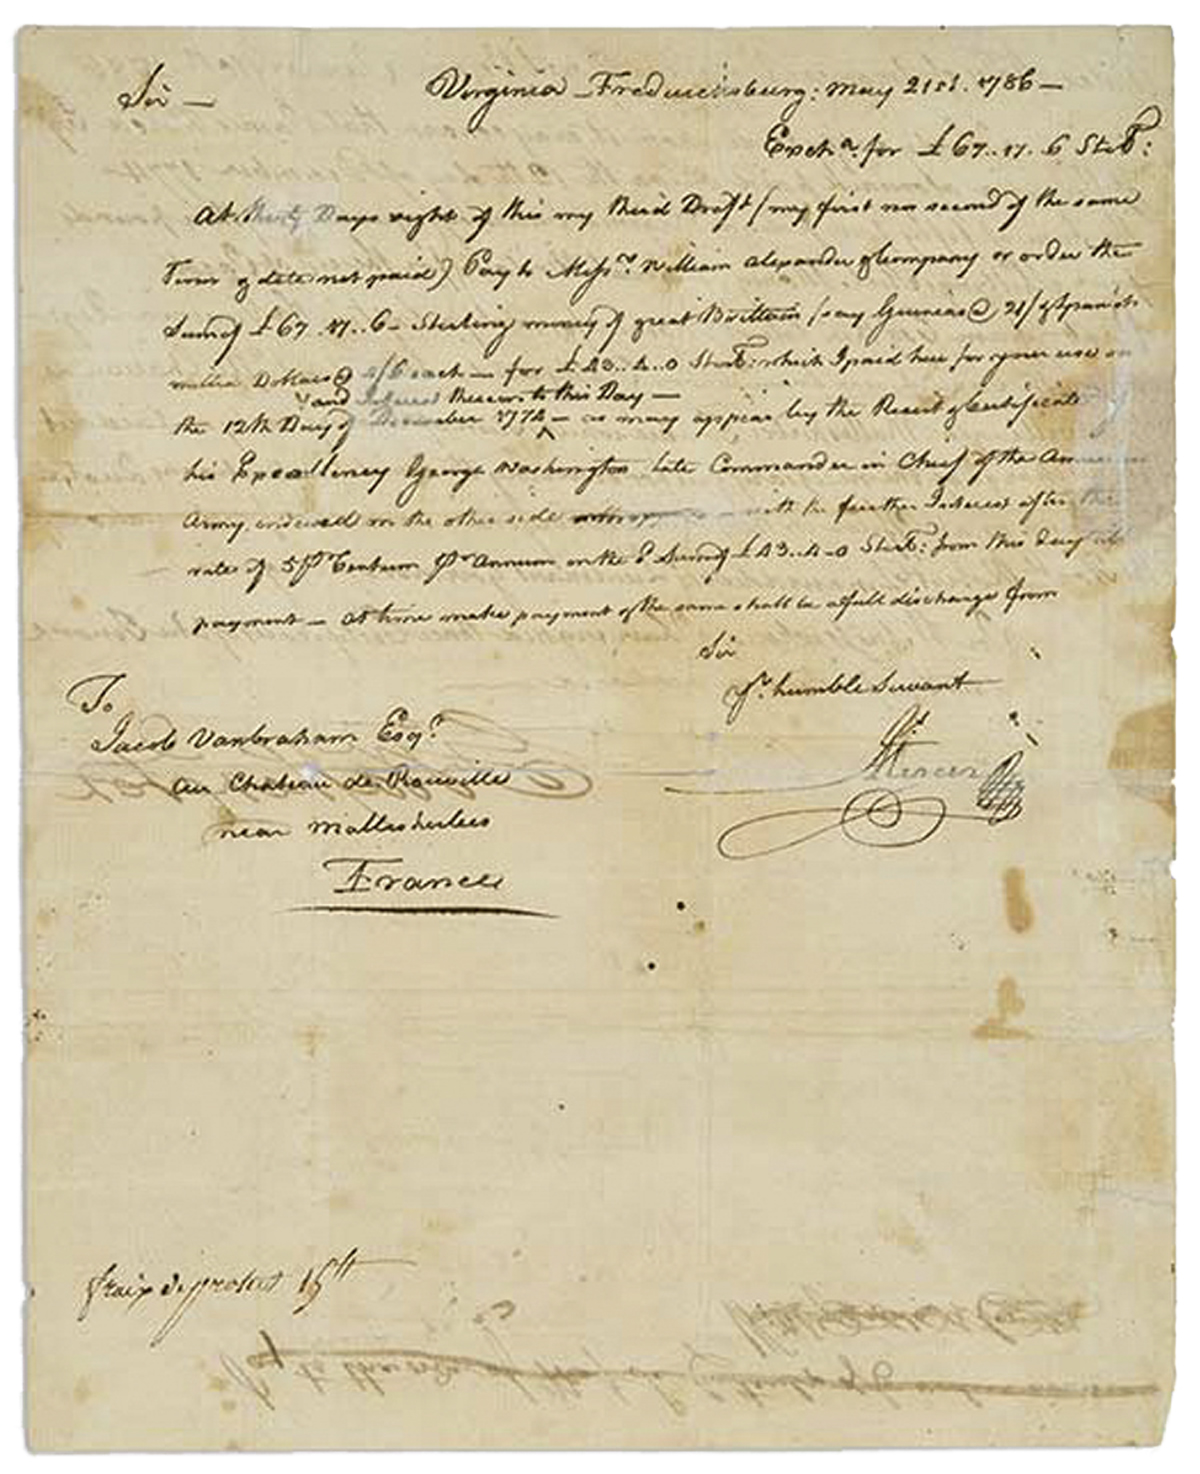 Sir —
Virginia Fredericksburg: May 21st. 1786 —
Exch.a for £67..17..6 Ster:
At thirty Days sight of this my third Draft (my first nor second of the same
Tenor & date not paid) Pay to Mess.rs William Alexander & Company or order the
Sum of £67..17..6 — Sterling money of great Brittain (say Guineas @ 21/ & Spanish
mill'd Dollars @ 4/6 each — for £43..4..0 Ster: which I paid here for your use on
and Interest thereon to this Day —
the 12th Day of December 1774 — as may appear by the Receit & Certificate of
his Excellency George Washington late Commander in Chief of the American
Army, indorsed on the other side — with the further Interest after the
rate of 5 pr Centum pr Annum on the sd Sum of £43..4..0 Ster: from this Day till
payment — at time make payment of the same shall be a full discharge from
Sir
yr. humble Servant
Mercer
To
Jacob Vanbraham Esq.r
au Chateau de Rouville
near Malesherbes
France
fraix de protest 15tt